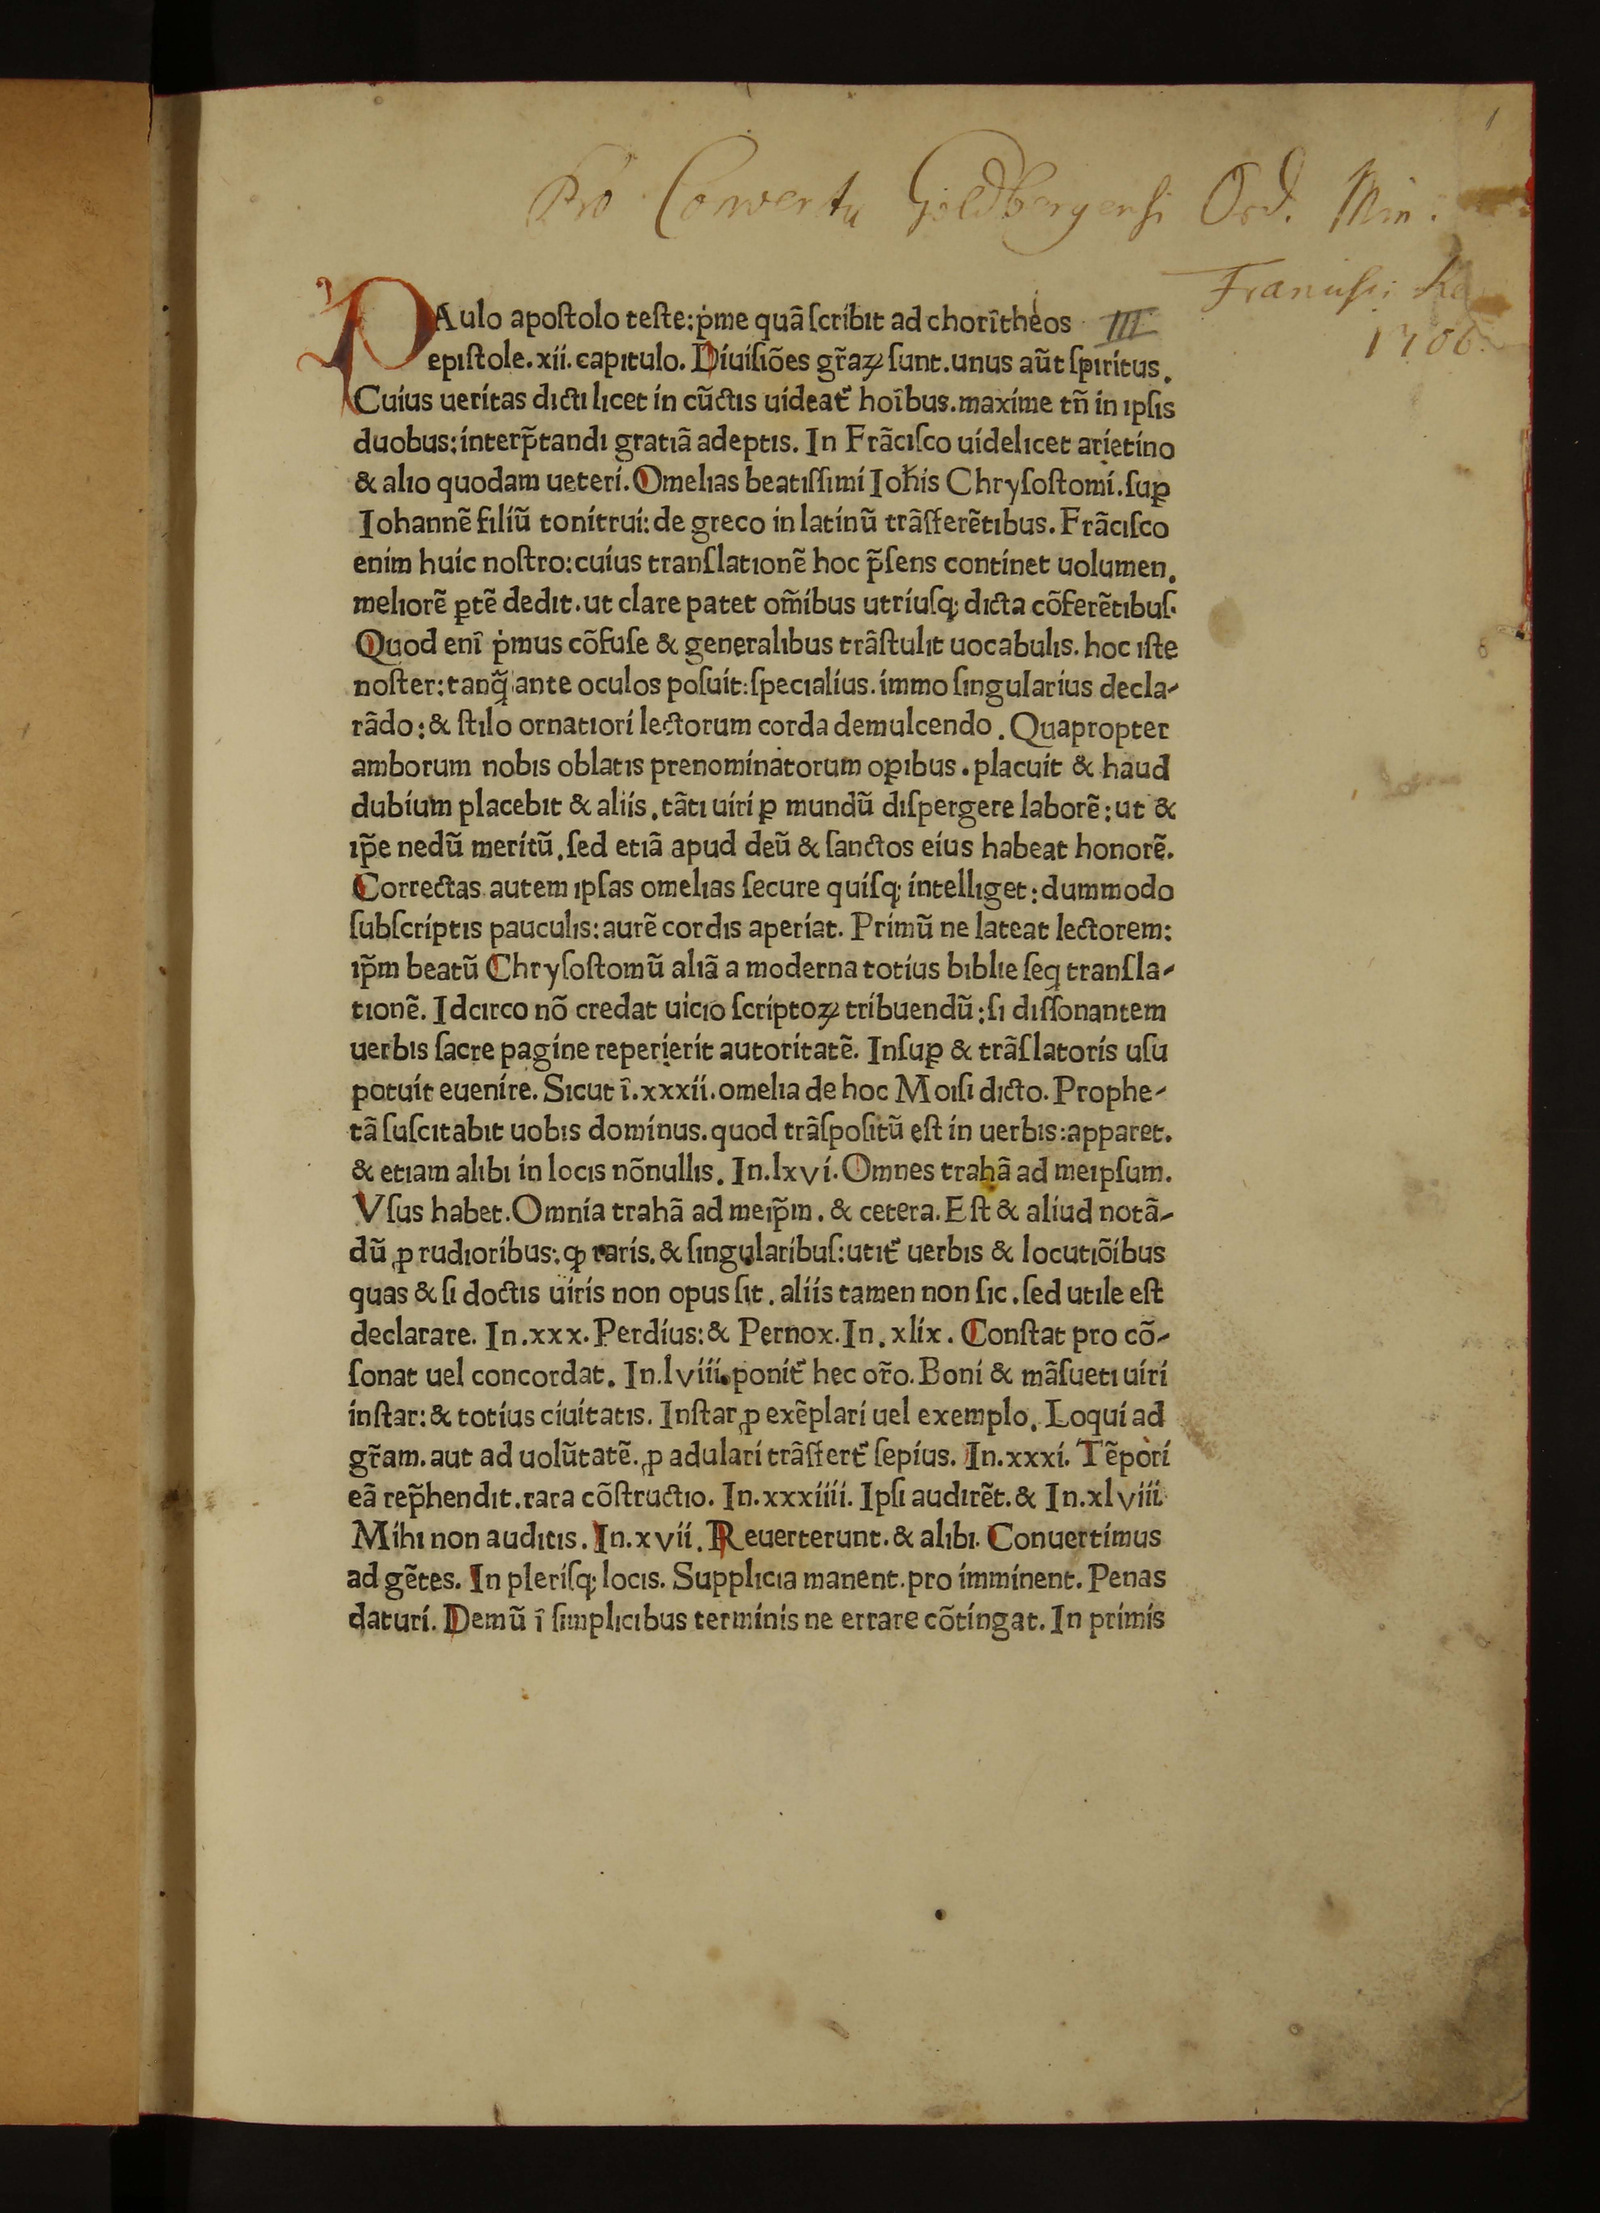 1
Pro Conventu Goldbergensi Ord. Min.
Francisci
1706
PAulo apoſtolo teſte:p̍me quã ſcribit ad chorĩtheos III
epiſtole.xii.capitulo. Diuiſiões gr̃aꝝ ſunt.unus aũt ſpiritus.
Cuius ueritas dicti licet in cũctis uideat᷑ hoĩbus.maxime tñ in ipſis
duobus:interp̃tandi gratiã adeptis. In Frãciſco uidelicet arietino
& alio quodam ueteri.Omelias beatiſſimi Ioh̃is Chryſoſtomi.ſuꝑ
Iohannẽ filiũ tonitrui:de greco in latinũ trãſferẽtibus.Frãciſco
enim huic noſtro:cuius tranſlationẽ hoc p̃ſens continet uolumen.
meliorẽ ꝑtẽ dedit.ut clare patet om̃ibus utriuſq; dicta cõferẽtibuſ.
Quod enĩ p̍mus cõfuſe & generalibus trãſtulit uocabulis.hoc iſte
noſter:tanq̃ ante oculos poſuit:ſpecialius.immo ſingularius decla-
rãdo:& ſtilo ornatiori lectorum corda demulcendo.Quapropter
amborum nobis oblatis prenominatorum oꝑibus.placuit & haud
dubium placebit & aliis.tãti uiri ꝑ mundũ diſpergere laborẽ:ut &
ip̃e nedũ meritũ.ſed etiã apud deũ & ſanctos eius habeat honorẽ.
Correctas autem ipſas omelias ſecure quiſq; intelliget:dummodo
ſubſcriptis pauculis:aurẽ cordis aperiat. Primũ ne lateat lectorem:
ip̃m beatũ Chryſoſtomũ aliã a moderna totius biblie ſeq tranſla-
tionẽ. Idcirco nõ credat uicio ſcriptoꝝ tribuendũ:ſi diſſonantem
uerbis ſacre pagine reperierit autoritatẽ. Inſuꝑ & trãſlatoris uſu
potuit euenire. Sicut ĩ.xxxii.omelia de hoc Moiſi dicto. Prophe-
tã ſuſcitabit uobis dominus.quod trãſpoſitũ eſt in uerbis:apparet.
& etiam alibi in locis nõnullis. In.lxvi.Omnes trahã ad meipſum.
Vſus habet.Omnia trahã ad meip̃m.& cetera.Eſt & aliud notã-
dũ ꝓ rudioribus:ꝙ raris.& ſingularibuſ:utit᷑ uerbis & locutiõibus
quas & ſi doctis uiris non opus ſit.aliis tamen non ſic.ſed utile eſt
declarare. In.xxx.Perdius:& Pernox.In.xlix. Conſtat pro cõ-
ſonat uel concordat. In.lviii.ponit᷑ hec or̃o.Boni & mãſueti uiri
inſtar:& totius ciuitatis. Inſtar ꝓ exẽplari uel exemplo. Loqui ad
gr̃am.aut ad uolũtatẽ.ꝓ adulari trãſfert᷑ ſepius. In.xxxi. Tẽpori
eã rep̃hendit.rara cõſtructio. In.xxxiiii. Ipſi audirẽt.& In.xlviii.
Mihi non auditis. In.xvii.Reuerterunt.& alibi. Conuertimus
ad gẽtes. In pleriſq; locis. Supplicia manent.pro imminent. Penas
daturi. Demũ ĩ ſimplicibus terminis ne errare cõtingat. In primis